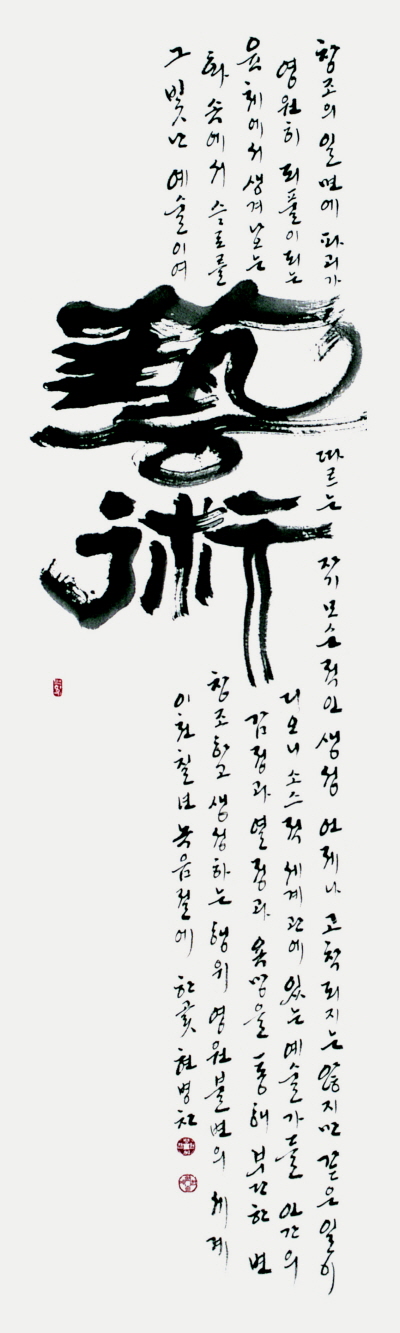 藝術
창조의 일면에 파괴가 따르는 자기 모순적인 생성 언제나 고착되지는 않지만 같은 일이
영원히 되풀이되는 디오니소스적 세계관에 있는 예술가들 인간의
육체에서 생겨나는 감정과 열정과 욕망을 통해 부단한 변
화 속에서 스스로를 창조하고 생성하는 행위 영원불변의 세계
그 빛난 예술이여 이천칠년 녹음절에 한곬 현병찬